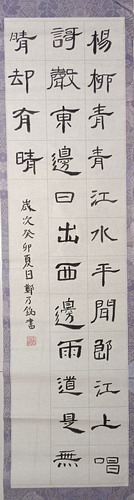 楊柳青青江水平聞郎江上唱
謌聲東邊日出西邊雨道是無
晴却有晴
歲次癸卯夏日鄭乃銘書